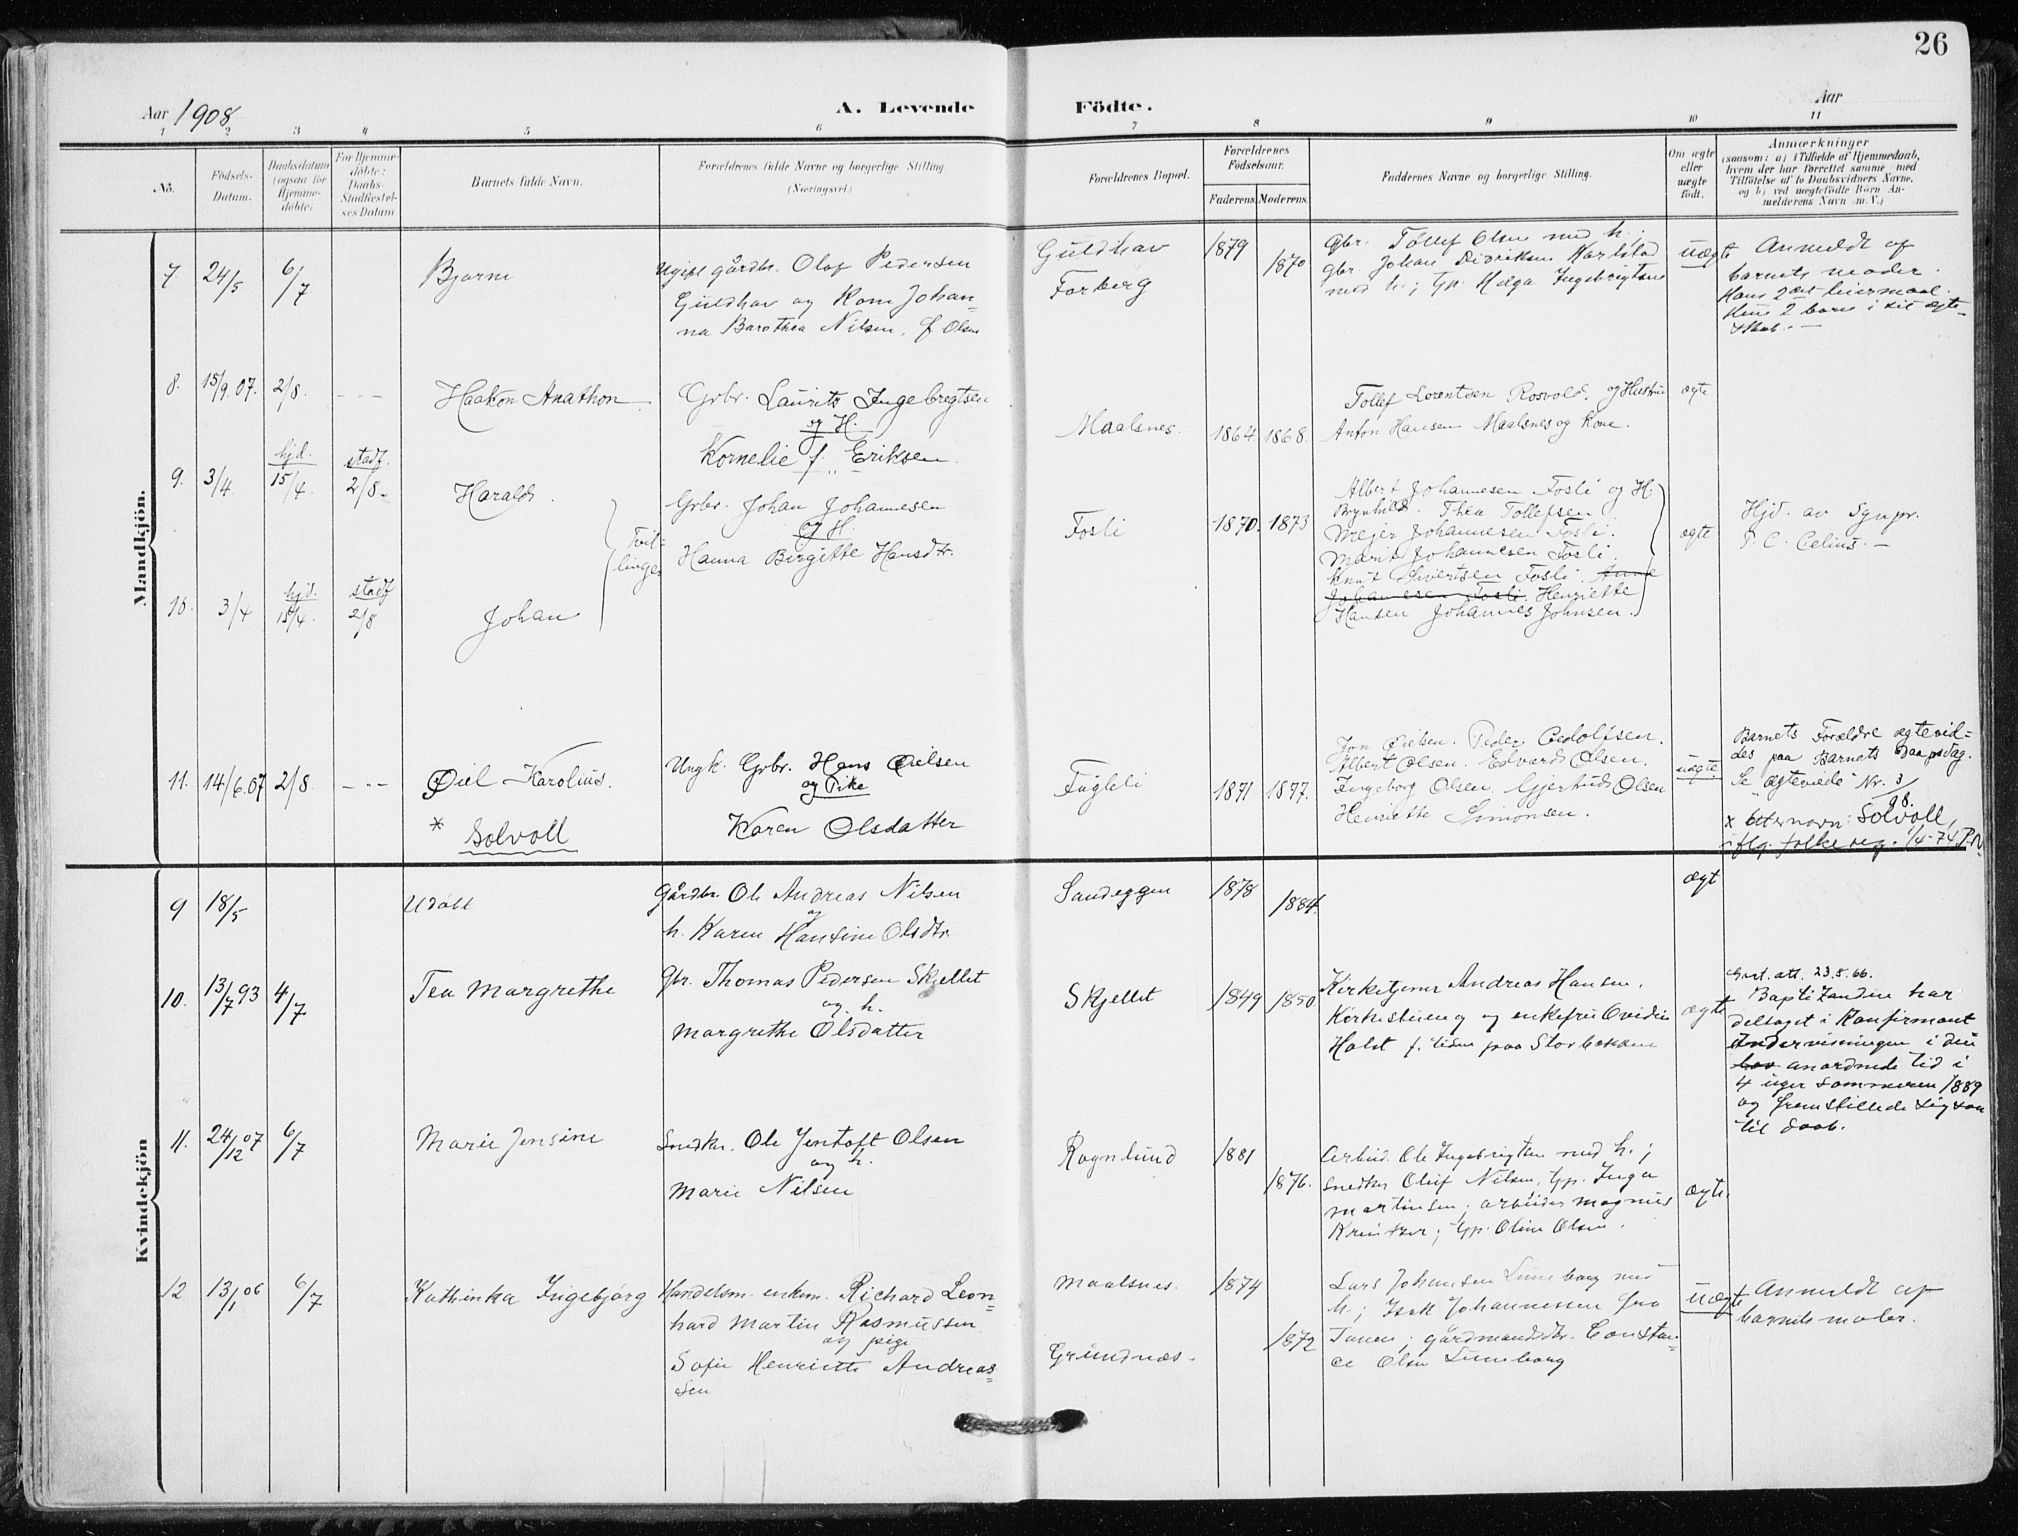 26
Aar 1908
A. Levende Födte.
Aar
1 2 3 4 5 6 7 8 9 10 11
No.
Födsels-
Datum.
Daabsdatum
(ogsaa for
Hjemme-
döbte.
For Hjemme-
döbte:
Daabs-
Stadfæstel-
ses Datum
Barnets fulde Navn.
Forældrenes fulde Navne og borgerlige Stilling.
(Næringsvei.)
Forældrenes Bopæl.
Forældrenes
Födselsaar.
Faderens. Moderens.
Faddernes Navne og borgerlige Stilling.
Om ægte
eller
uægte
födt.
Anmærkninger
(saasom: a) i Tilfælde af Hjemmedaab,
hvem der har forrettet samme, med
Tilföielse af to Daabsvidners Navne,
og b) ved uegtefödte Börn An-
melderens Navn m. V.)
Mandkjön.
7 24/5 6/7 Bjarne
Ugift gårdbr. Olaf Pedersen
Guldhav og Kone Johan-
na Barothea Nilsen, f Olsen
Guldhav
Forberg
1879 1870
Gbr. Tollef Olsen med h.;
gbr. Johan Didriksen Karlstad
med h.; tjp. Helga Ingebrigtsen
uægte
Anmeldt af
barnets moder.
Hans 2det leiermaal.
Hun 2 barn i sit ægte-
skab. —
8. 15/9.07. 2/8. - - - Haakon Anathon
Grbr. Laurits Ingebregtsen
og H.
Kornelie f. Eriksen
Maalsnes. 1864. 1868.
Tollef Lorentsen Rosvold. og Hustru
Anton Hansen Maalsnes og Kone.
ægte
9. 3/4. hjd. 15/4. stadf. 2/8. Harald.
Tvil-
linger
Grbr. Johan Johannesen
og H.
Hanna Birgitte Hansdtr.
Fosli 1870. 1873
Albert Johannesen Fosli og H.
Brynhild. Thea Tollefsen
Meier Johannesen Fosli.
Marit Johannesen Fosli.
Knut Sivertsen Fosli. Anne
Johannesen Fosli. Henriette
Hansen Johannes Johnsen.
ægte
Hjd. av Sgnpr.
P. C. Celius. —
10. 3/4 hjd. 15/4. stadf 2/8 Johan
11. 14/6.07 2/8. - - - Ediel Karolius.
* Solvoll
Ungk. Grbr. Hans Edielsen
og Pike
Karen Olsdatter
Fugleli 1871 1877.
Albert Olsen. Edvard Olsen.
Ingeborg Olsen. Gjertrud Olsen
Henriette Simonsen.
uægte
Barnets Forældre ægtevid-
des paa Barnets Daapsdag.
Se ægteviede Nr. 3/08.
x Etternavn: Solvoll,
iflg. folkereg. 1/4-74.
Kvindekjön
9 18/5 Udöbt
Gårdbr. Ole Andreas Nilsen
og
h. Karen Hansine Olsdtr.
Sandeggen 1878 1884.
ægt
10. 13/7 93 4/7 Tea Margrethe
Gbr. Thomas Pedersen Skjellet
og h.
Margrethe Olsdatter
Skjellet 1849 1850
Kirketjener Andreas Hansen,
Kirkesteien og og enkefru Ovidia
Holst f. tiden paa Storbakken
ægte
Gust. att. 23.5.66.
Baptizanden har
deltaget i Konfirmant
undervisningen i den
lov anordnede tid i
4 uger sommeren 1889
og fremstillede sig saa
til daab.
11. 24/12 07 6/7 Marie Jensine
Snedkr. Ole Jentoft Olsen
og h.
Marie Nilsen
Rognlund 1881 1876.
Arbeid. Ole Ingebrigtsen med h.;
snedker Oluf Nilsen, tjp. Inga
Martinsen; arbeider Magnus
Kreutzer; tjp. Oline Olsen.
ægte.
12 13/1 06 6/7 Kathinka Ingebjørg
Handelsm. enkem. Richard Leon-
hard Martin Rasmussen
og pige
Sofie Henriette Andreas-
sen
Maalsnes. 1874
Grundnæs. 1872
Lars Johansen Luneborg med
h.; Isak Johannessen fra
Tanen; gårdmandsdtr. Constan-
ce Olsen Luneborg
uægte
Anmeldt af
barnets moder.